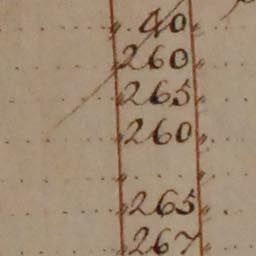 40
260
265
260
265
267